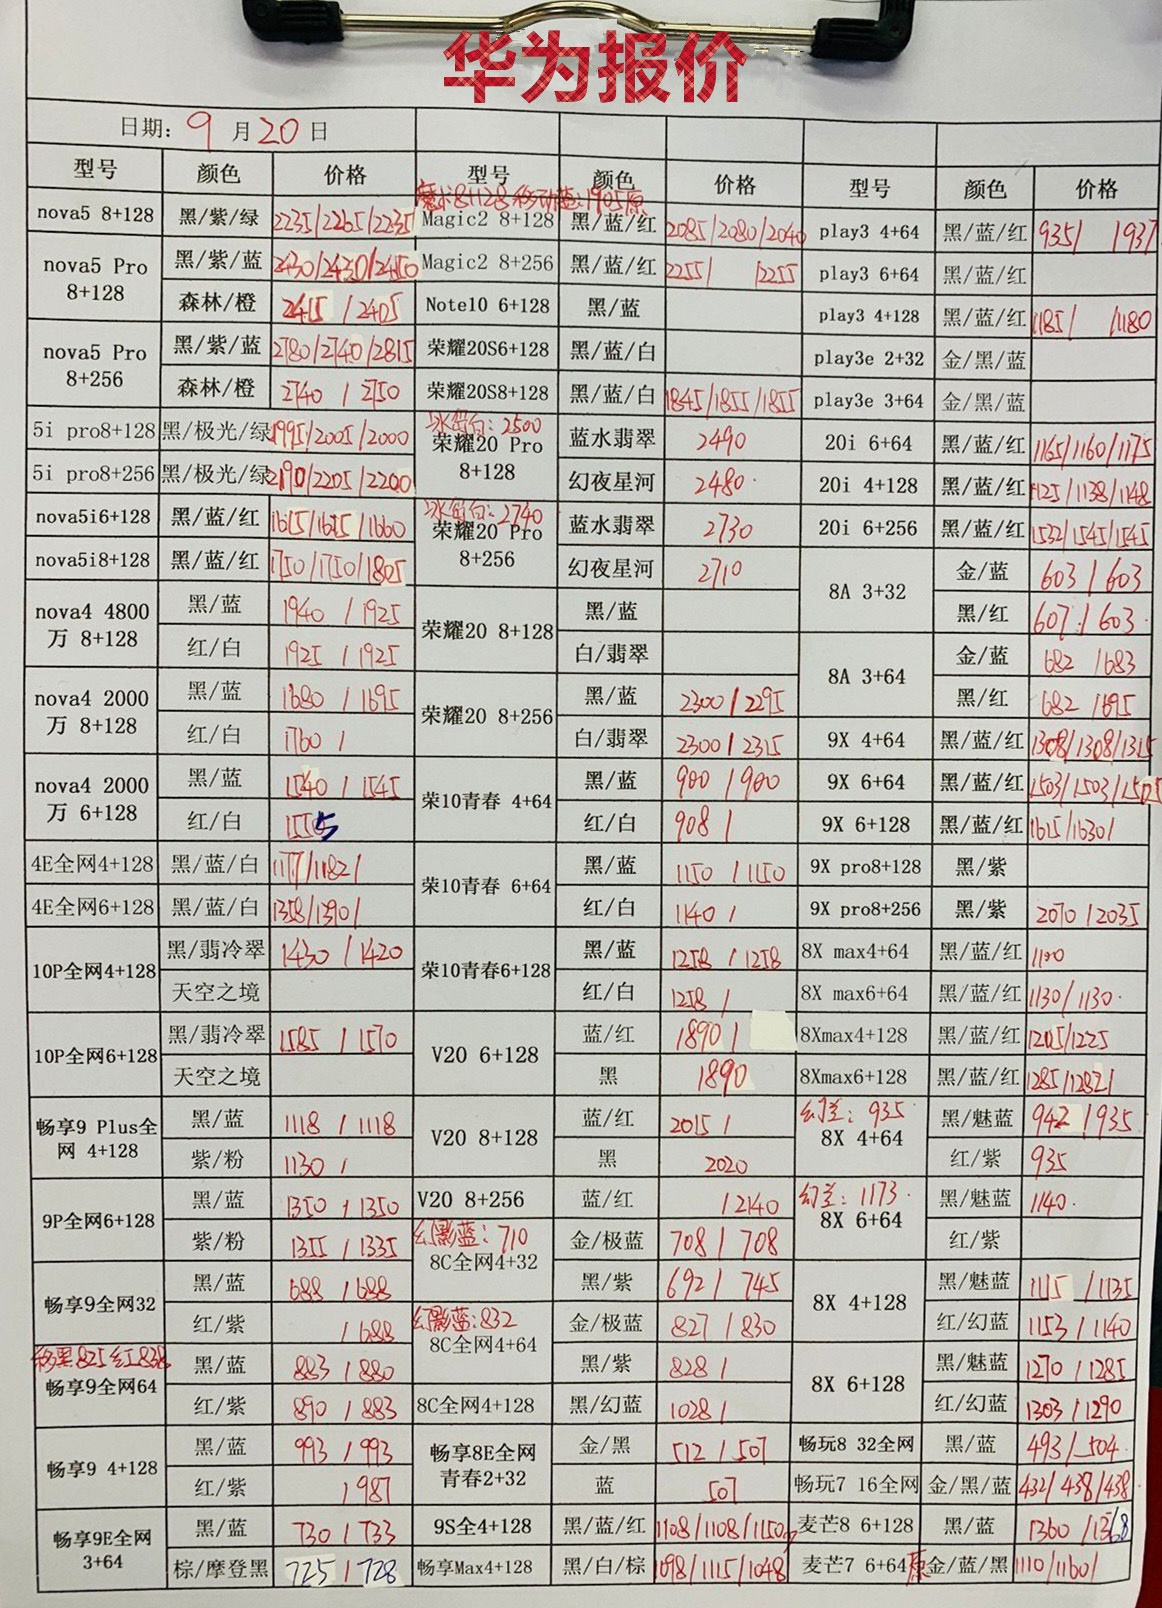 华为报价
日期: 9 月 20 日
型号 颜色 价格 型号 颜色 价格 型号 颜色 价格
nova5 8+128 黑/紫/绿 2235/2265/2235
nova5 Pro 8+128 黑/紫/蓝 2430/2430/2450
森林/橙 2415 / 2405
nova5 Pro 8+256 黑/紫/蓝 2780/2740/2815
森林/橙 2740 / 2750
5i pro8+128 黑/极光/绿 1995/2005/2000
5i pro8+256 黑/极光/绿 2190/2205/2200
nova5i6+128 黑/蓝/红 1615/1615/1660
nova5i8+128 黑/蓝/红 1750/1750/1805
nova4 4800万 8+128 黑/蓝 1940 / 1925
红/白 1925 / 1925
nova4 2000万 8+128 黑/蓝 1680 / 1695
红/白 1760 /
nova4 2000万 6+128 黑/蓝 1540 / 1545
红/白 1555
4E全网4+128 黑/蓝/白 1177/1182/
4E全网6+128 黑/蓝/白 1358/1390/
10P全网4+128 黑/翡冷翠 1430 / 1420
天空之境
10P全网6+128 黑/翡冷翠 1585 / 1570
天空之境
畅享9 Plus全网 4+128 黑/蓝 1118 / 1118
紫/粉 1130 /
9P全网6+128 黑/蓝 1350 / 1350
紫/粉 1355 / 1335
畅享9全网32 黑/蓝 688 / 688
红/紫 / 688
移黑825红838
畅享9全网64 黑/蓝 883 / 880
红/紫 890 / 883
畅享9 4+128 黑/蓝 993 / 993
红/紫 / 987
畅享9E全网 3+64 黑/蓝 730 / 733
棕/摩登黑 725 / 728
魔术8+128移动蓝:1905原
Magic2 8+128 黑/蓝/红 2085/2080/2040
Magic2 8+256 黑/蓝/红 2255/ /2255
Note10 6+128 黑/蓝
荣耀20S6+128 黑/蓝/白
荣耀20S8+128 黑/蓝/白 1845/1855/1855
冰岛白: 2500
荣耀20 Pro 8+128 蓝水翡翠 2490
幻夜星河 2480
冰岛白: 2740
荣耀20 Pro 8+256 蓝水翡翠 2730
幻夜星河 2710
荣耀20 8+128 黑/蓝
白/翡翠
荣耀20 8+256 黑/蓝 2300 / 2295
白/翡翠 2300 / 2315
荣10青春 4+64 黑/蓝 900 / 900
红/白 908 /
荣10青春 6+64 黑/蓝 1150 / 1150
红/白 1140 /
荣10青春6+128 黑/蓝 1258 / 1258
红/白 1258 /
V20 6+128 蓝/红 1890 /
黑 1890
V20 8+128 蓝/红 2015 /
黑 2020
V20 8+256 蓝/红 / 2140
幻影蓝: 710
8C全网4+32 金/极蓝 708 / 708
黑/紫 692 / 745
幻影蓝:832
8C全网4+64 金/极蓝 827 / 830
黑/紫 828 /
8C全网4+128 黑/幻蓝 1028 /
畅享8E全网 青春2+32 金/黑 512 / 507
蓝 507
9S全4+128 黑/蓝/红 1108/1108/1150
畅享Max4+128 黑/白/棕 1098/1115/1048
play3 4+64 黑/蓝/红 935/ /937
play3 6+64 黑/蓝/红
play3 4+128 黑/蓝/红 1185/ /1180
play3e 2+32 金/黑/蓝
play3e 3+64 金/黑/蓝
20i 6+64 黑/蓝/红 1165/1160/1175
20i 4+128 黑/蓝/红 1125/1138/1148
20i 6+256 黑/蓝/红 1532/1545/1545
8A 3+32 金/蓝 603 / 603
黑/红 607 / 603
8A 3+64 金/蓝 682 / 683
黑/红 682 / 695
9X 4+64 黑/蓝/红 1308/1308/1315
9X 6+64 黑/蓝/红 1503/1503/1505
9X 6+128 黑/蓝/红 1615/1630/
9X pro8+128 黑/紫
9X pro8+256 黑/紫 2070 / 2035
8X max4+64 黑/蓝/红 1100
8X max6+64 黑/蓝/红 1130/ 1130
8Xmax4+128 黑/蓝/红 1205/1225
8Xmax6+128 黑/蓝/红 1285/1282/
幻兰: 935
8X 4+64 黑/魅蓝 942 / 935
红/紫 935
幻兰: 1173
8X 6+64 黑/魅蓝 1140
红/紫
8X 4+128 黑/魅蓝 1115 / 1135
红/幻蓝 1153 / 1140
8X 6+128 黑/魅蓝 1270 / 1285
红/幻蓝 1303 / 1290
畅玩8 32全网 黑/蓝 493/ 504
畅玩7 16全网 金/黑/蓝 432/ 438/438
麦芒8 6+128 黑/蓝 1360 / 1368
麦芒7 6+64原 金/蓝/黑 1110/1160/